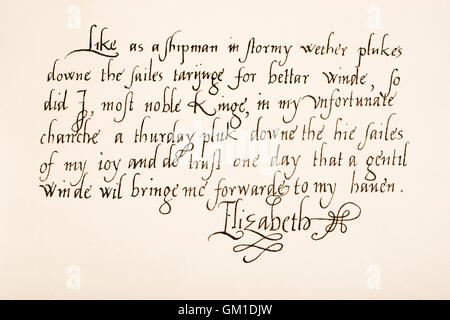 Like as a shipman in stormy wether plukes
downe the sailes tarijnge for bettar winde, so
did I, most noble Kinge, in my vnfortunate
chanche a thurday pluk downe the hie sailes
of my ioy and do trust one day that a gentil
winde wil bringe me forwarde to my hauen.
Elizabeth
alamy
GM1DJW